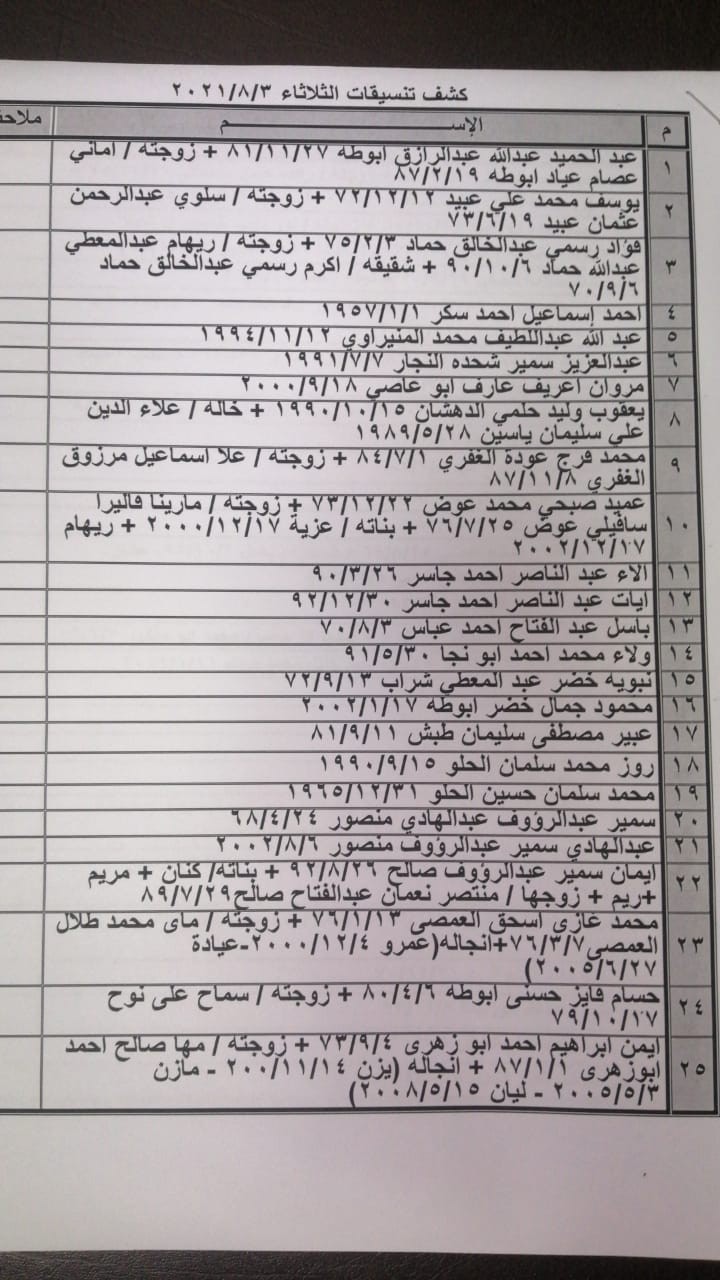 كشف تنسيقات الثلاثاء ٢٠٢١/٨/٣
م الإســـــــــم
١ عبد الحميد عبدالله عبدالرازق ابوطه ٨١/١١/٢٧ + زوجته / اماني
عصام عياد ابوطه ٨٧/٢/١٩
٢ يوسف محمد علي عبيد ٧٢/١٢/١٢ + زوجته / سلوي عبدالرحمن
عثمان عبيد ٧٣/٦/١٩
٣ فؤاد رسمي عبدالخالق حماد ٧٥/٢/٣ + زوجته / ريهام عبدالمعطي
عبدالله حماد ٩٠/١٠/٦ + شقيقه / اكرم رسمي عبدالخالق حماد
٧٠/٩/٦
٤ احمد إسماعيل احمد سكر ١٩٥٧/١/١
٥ عبد الله عبداللطيف محمد المنيراوي ١٩٩٤/١١/١٢
٦ عبدالعزيز سمير شحده النجار ١٩٩١/٧/٧
٧ مروان اعريف عارف ابو عاصي ٢٠٠٠/٩/١٨
٨ يعقوب وليد حلمي الدهشان ١٩٩٠/١٠/١٥ + خاله / علاء الدين
علي سليمان ياسين ١٩٨٩/٥/٢٨
٩ محمد فرج عودة الغفري ٨٤/٧/١ + زوجته / علا اسماعيل مرزوق
الغفري ٨٧/١١/٨
١٠ عميد صبحي محمد عوض ٧٣/١٢/٢٢ + زوجته / مارينا فاليرا
سافيلي عوض ٧٦/٧/٢٥ + بناته / عزية ٢٠٠٠/١٢/١٧ + ريهام
٢٠٠٢/١٢/١٧
١١ الاء عبد الناصر احمد جاسر ٩٠/٣/٢٦
١٢ ايات عبد الناصر احمد جاسر ٩٢/١٢/٣٠
١٣ باسل عبد الفتاح احمد عباس ٧٠/٨/٣
١٤ ولاء محمد احمد ابو نجا ٩١/٥/٣٠
١٥ نبويه خضر عبد المعطي شراب ٧٢/٩/١٣
١٦ محمود جمال خضر ابوطه ٢٠٠٢/١/١٧
١٧ عبير مصطفى سليمان طبش ٨١/٩/١١
١٨ روز محمد سلمان الحلو ١٩٩٠/٩/١٥
١٩ محمد سلمان حسين الحلو ١٩٦٥/١٢/٣١
٢٠ سمير عبدالرؤوف عبدالهادي منصور ٦٨/٤/٢٤
٢١ عبدالهادي سمير عبدالرؤوف منصور ٢٠٠٢/٨/٦
٢٢ ايمان سمير عبدالرؤوف صالح ٩٢/٨/٢٦ + بناته/ كنان + مريم
+ريم + زوجها / منتصر نعمان عبدالفتاح صالح٨٩/٧/٢٩
٢٣ محمد غازى اسحق العمصى ٧٦/١/١٣ + زوجته / ماى محمد طلال
العمصى٧٦/٣/٧+انجاله(عمرو ٢٠٠٠/١٢/٤-عيادة
٢٠٠٥/٦/٢٧)
٢٤ حسام فايز حسنى ابوطه ٨٠/٤/٦ + زوجته / سماح على نوح
٧٩/١٠/١٧
٢٥ ايمن ابراهيم احمد ابو زهرى ٧٣/٩/٤ + زوجته / مها صالح احمد
ابوزهرى ٨٧/١/١ + انجاله (يزن ٢٠٠/١١/١٤ - مازن
٢٠٠٥/٥/٣ - ليان ٢٠٠٨/٥/١٥)